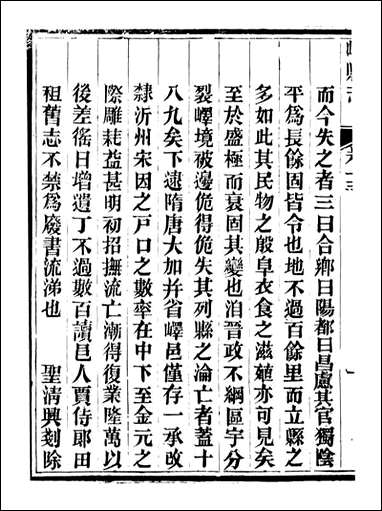 而今失之者三曰合鄉曰陽都曰昌慮其官獨陰
平爲長餘固皆令也地不過百餘里而立縣之
多如此其民物之殷阜衣食之滋殖亦可見矣
至於盛極而衰固其變也洎晉政不綱區宇分
裂嶧境被邊傂得傂失其列縣之淪亡者蓋十
八九矣下逮隋唐大加并省嶧邑僅存一承改
隸沂州宋因之戸口之數率在中下至金元之
際雕耗益甚明初招撫流亡漸得復業隆萬以
後差徭日增遺丁不過數百讀邑人賈侍郞田
租舊志不禁爲廢書流涕也　聖清興剗除